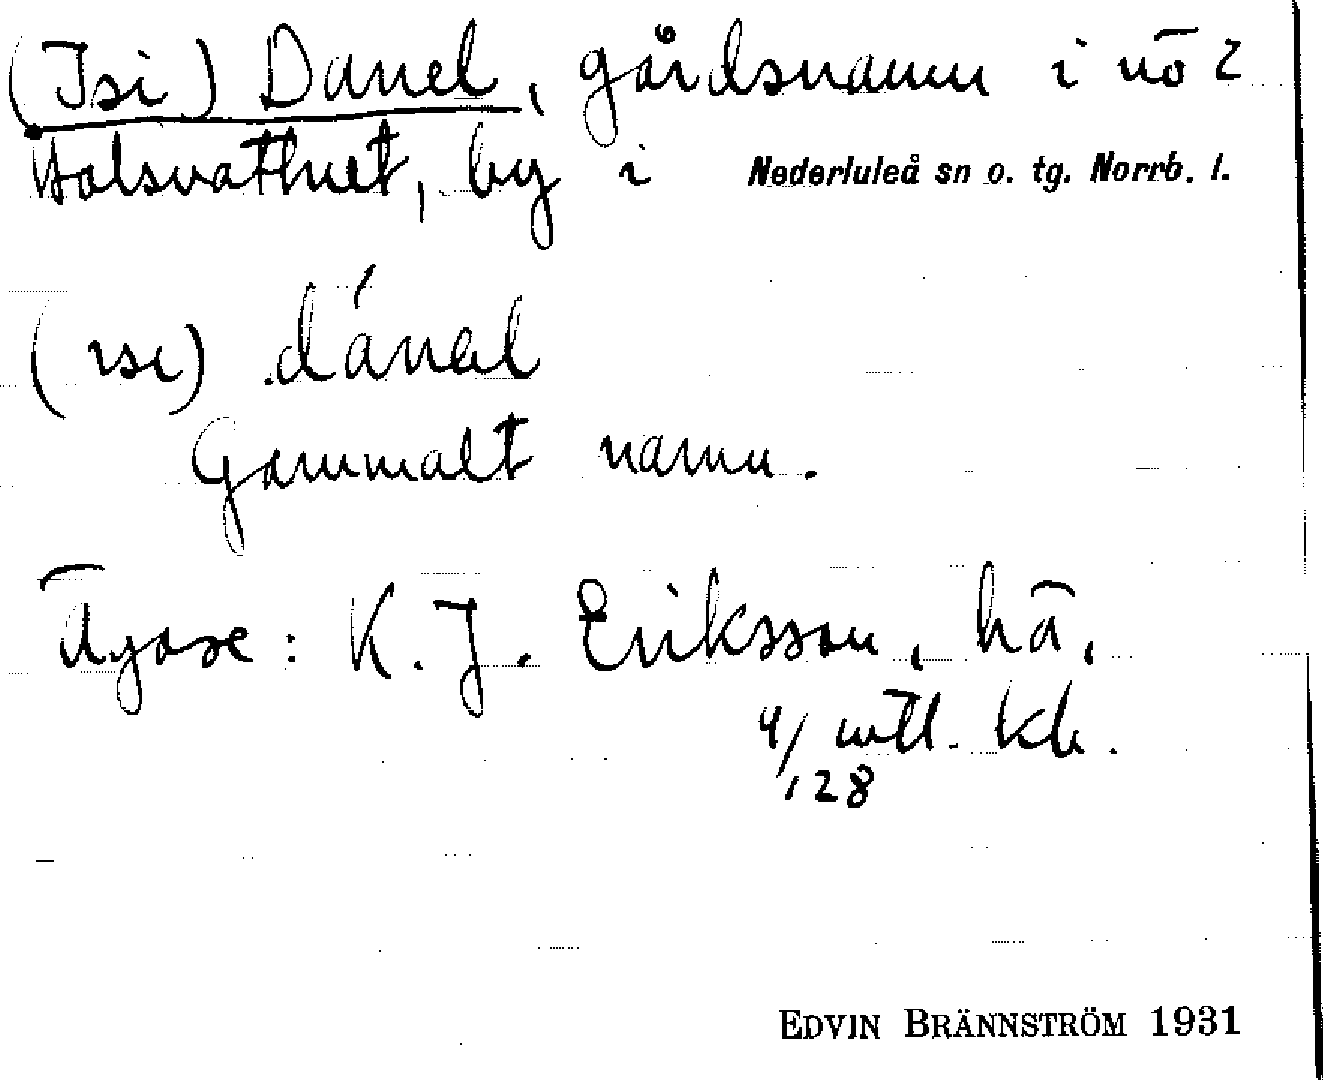 (Isi) Danel, gårdsnamn i nö
by i Nederluleå sn o. tg. Norrb. l.
(ɪsɪ) dánəl
Gammalt namn.
Ägare: K. J. Eriksson, hä,
4/128 mtl. kb.
EDVIN BRÄNNSTRÖM 1931